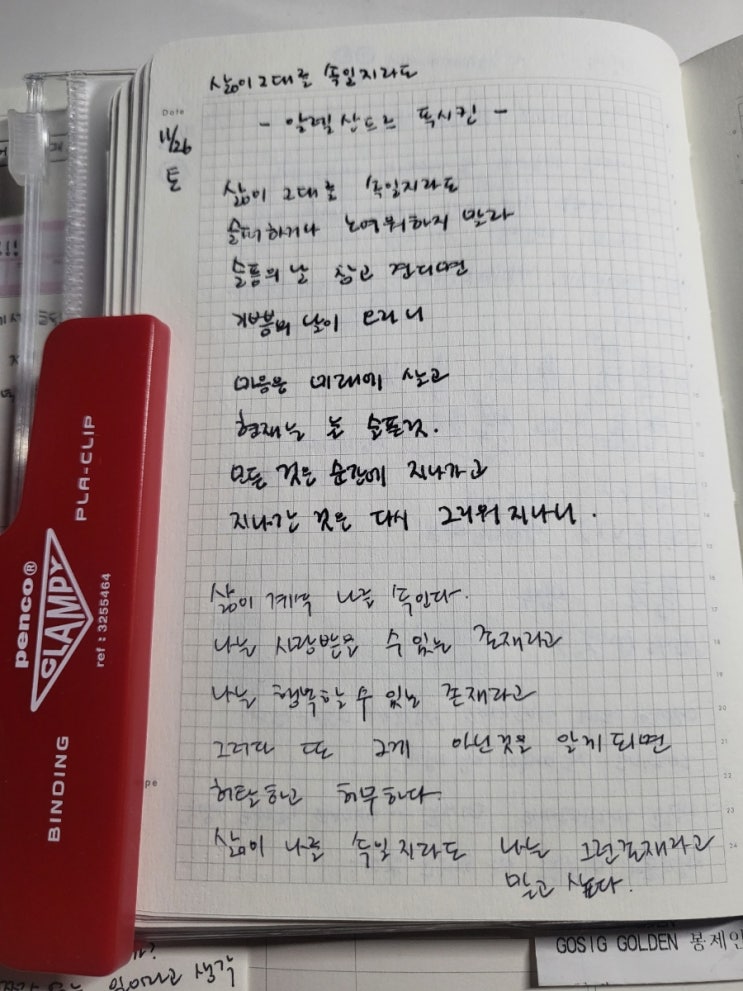 삶이 그대를 속일지라도
Date
- 알렉산드르 푸시킨 -
11/26
토
삶이 그대를 속일지라도
슬퍼하거나 노여워하지 말라
슬픔의 날 참고 견디면
기쁨의 날이 오리니
마음은 미래에 살고
현재는 늘 슬픈것.
모든 것은 순간에 지나가고
지나간 것은 다시 그리워지나니.
삶이 계속 나를 속인다.
나는 사랑받을 수 있는 존재라고
나는 행복할 수 있는 존재라고
그러다 또 그게 아닌것을 알게되면
허탈하고 허무하다.
삶이 나를 속일지라도 나는 그런존재라고
믿고 싶다.
penco®
CLAMPY
PLA-CLIP
ref : 3255464
BINDING
pe
GOSIG GOLDEN 봉제인
있어라고 생각